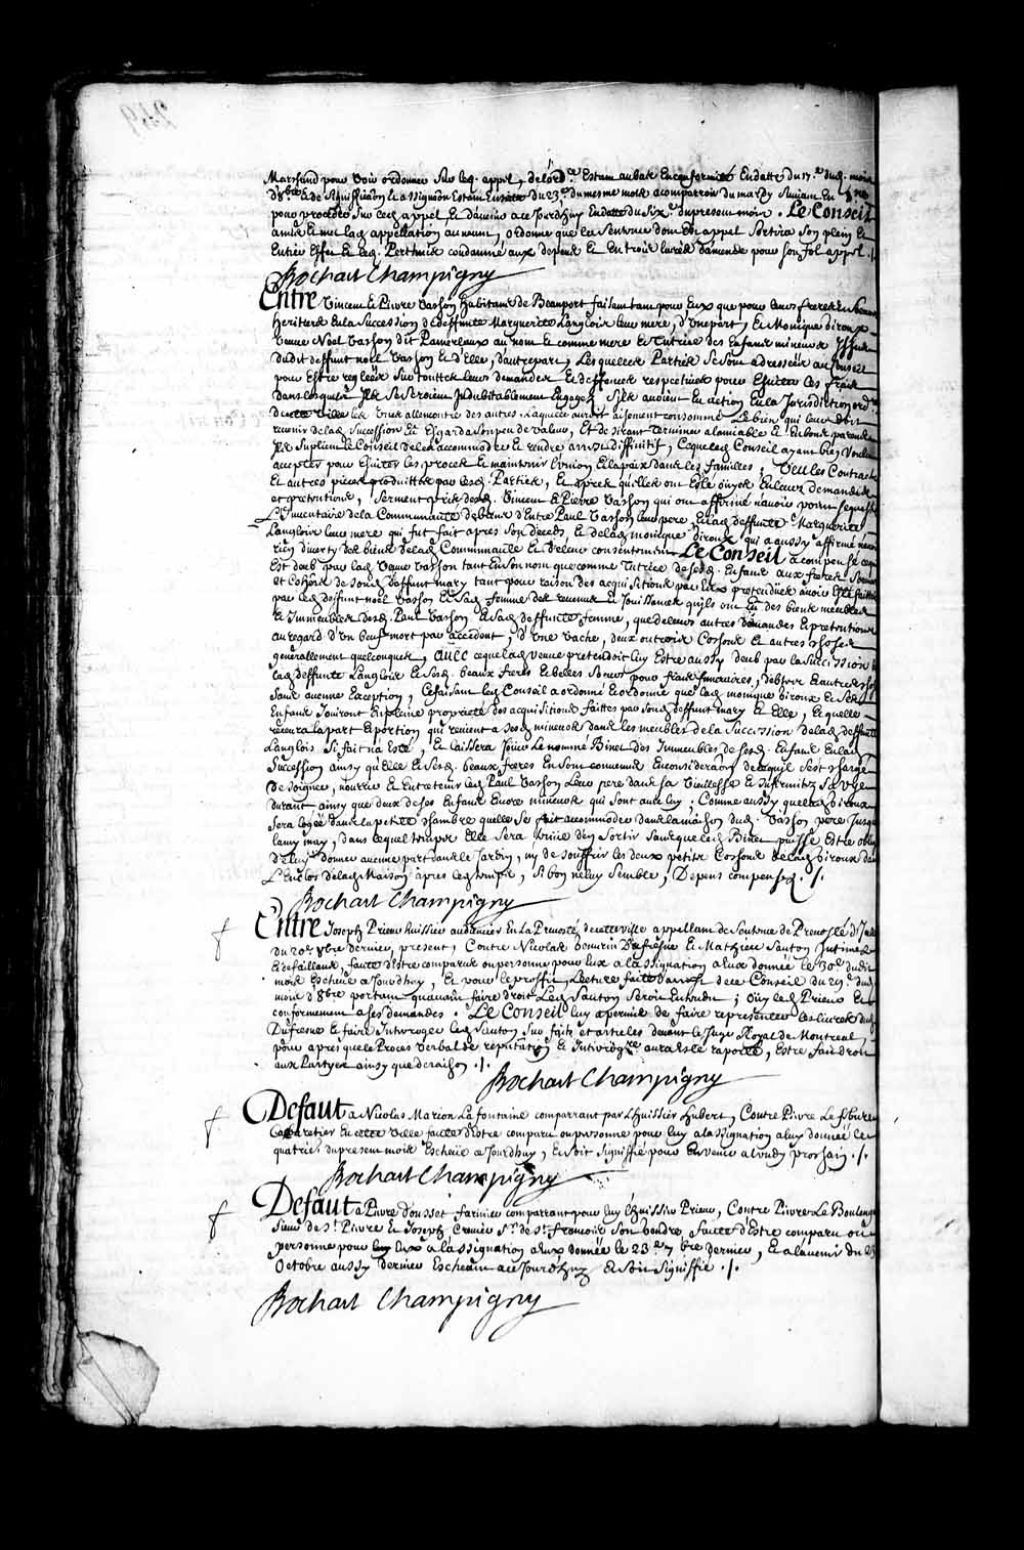 Marchand pour voir ordonner sur led. appel, de lord.ce estant au bas en conformité en datte du 17.e dud. mois
d'8bre et de signiffication et assignation estant ensuite du 23.e du mesme mois a comparoir du mardy suivant en
pour proceder sur led. appel et d'avenir a ce jourd'huy en datte du six.e du present mois. Le Conseil
a mis et met lad. appellation au neant, ordonne que la sentence dont est appel sortira son plein et
entier effet et led. condamné aux depens et en trois livres d'amende pour son fol appel ./.
Bochart Champigny
Entre Vincent et Pierre Vachon habitans de Beauport faisant tant pour eux que pour leurs freres et soeurs
heritiers en la succession de deffunte Marguerite Langlois leur mere, d'une part, et Monique Giroux
veuve Noel Vachon dit Pamerleaux au nom et comme mere et tutrice des enfans mineurs issus
dudit deffunt noel Vachon et d'Elle, d'autre part, Lesquelles Parties se sont adressées au Conseil
pour estre reglées sur touttes leurs demandes et deffences respectives pour eviter les frais
dans lesquels Ils se seroient indubitablement engagez, s'ils avoient en action en la Jurisdiction ord.re
de cette ville les uns allencontre des autres laquelle auroit aisement consommé le bien qui leur doit
revenir de lad. succession Eu Esgard a son peu de valeur, et desirant terminer a l'amiable et en bons parens
Ils suplient le Conseil de les accommoder et rendre arrest diffinitif, Ce que led. Conseil ayant bien voulu
accepter pour eviter les procez et maintenir l'union et la paix dans les familles; Veu les Contracts
et autres pieces produittes par lesd. Parties, et aprez qu'elles ont esté ouyes en leurs demandes
et pretentions, serment pris desd. Vincent et Pierre Vachon qui ont affirmé n'avoir point
L'inventaire de la Communauté de biens d'entre Paul Vachon leur pere et lad. deffunte Marguerite
Langlois leur mere qui fut fait apres son deceds, et de lad. monique Giroux qui a aussy affirmé n'avoir
rien diverty des biens de lad. Communauté et de leur consentement Le Conseil a compensé ce qui
est deub par lad. veuve Vachon tant en son nom que comme tutrice de sesd. enfans aux freres soeurs
et Cohoirs de sond. deffunt mary tant pour raison des acquisitions par eux pretendues avoir esté faittes
par led. deffunt noel Vachon et sad. femme des revenus et jouissances qu'ils ont eu des biens meubles
et Immeubles desd. Paul Vachon et sad. deffunte femme, que de leurs autres demandes et pretentions
au regard d'un beuf mort par accident, d'une vache, deux ou trois Cochons et autres choses
generallement quelconques, avec ce que lad. veuve pretendoit luy estre aussy deub par la succession de
lad. deffunte Langlois et sesd. beaux freres et belles soeurs pour frais funeraires, debtes et autres choses
sans aucune exception, Ce faisant led. Conseil a ordonné et ordonne que lad. monique Giroux et sesd.
enfans jouiront en pleine propriété des acquisitions faittes par sond. deffunt mary et Elle, et quelle
recevra la part et portion qui revient a sesd. mineurs dans les meubles de la succession de lad. deffunte
Langlois si fait n'a esté, et laissera jouir le nommé Binet des Immeubles de sesd. enfans en lad.
succession ainsy qu'Elle et sesd. beaux freres en sont convenus en consideration de ce qu'il s'est chargé
de soigner, nourrir et entretenir led. Paul Vachon leur pere dans sa vieillesse et infirmitez sa vye
durant, ainsy que deux de ses enfans encore mineurs qui sont avec luy; Comme aussy quelle Giroux
sera logée dans la petite chambre quelle se fait accommoder dans la maison dud. Vachon pere jusqu'a
lan my may, dans lequel temps Elle sera tenue d'en sortir sans que led. Binet puisse estre obligé
de luy donner aucune part dans le Jardin, ny de souffrir les deux petits Cochons de lad. Giroux dans
L'enclos de lad. Maison apres led. temps, si bon ne luy semble, Depens compensez ./.
Bochart Champigny
Entre Joseph Prieur huissier audiancier en la Prevosté de cette ville appellant de sentence de Prevosté d'icelle
du 20.e 8bre dernier, present, Contre Nicolas Dufresne et Mathieu Santon Intimez
et defaillans, faute d'estre comparus ou personne pour eux a lassignation a eux donnée le 30.e dudit
mois escheue a jourd'huy, et pour le proffit, Lecture faitte d'arrest de ce Conseil du 29.e dud.
mois d'8bre portant qu'avant faire droit led. Santon seroit entendu; ouy led. Prieur et
conformement a ses demandes. Le Conseil luy a permis de faire representer les livres dud.
Dufresne et faire Interroger led. Santon sur faits et articles devant le Juge Royal de Montreal,
pour apres que le Proces verbal de representation et Interrog.re aura esté raporté, Estre fait droit
aux Partyes ainsy que de raison ./.
Bochart Champigny
Defaut a Nicolas Marion La fontaine comparrant par L'huissier Hubert, Contre Pierre Le febvre
Cabaretier en cette ville faute d'estre comparu ou personne pour luy a lassignation a luy donnée le
quatrie. du present mois escheüe a Jourd'huy, et soit signiffié pour en venir a lundy prochain ./.
Bochart Champigny
Defaut a Pierre Dousset farinier comparrant pour luy l'huissier Prieur, Contre Pierre Le Boulanger
sieur de S.t Pierre et Joseph Crevier S.r de S.t francois son gendre, faute d'Estre comparu ou
personne pour eux a lassignation a eux donnée le 23.e 7bre dernier, et a l'avenir du 23
Octobre aussy dernier escheant a ce jourd'huy Et soit signiffié ./.
Bochart Champigny